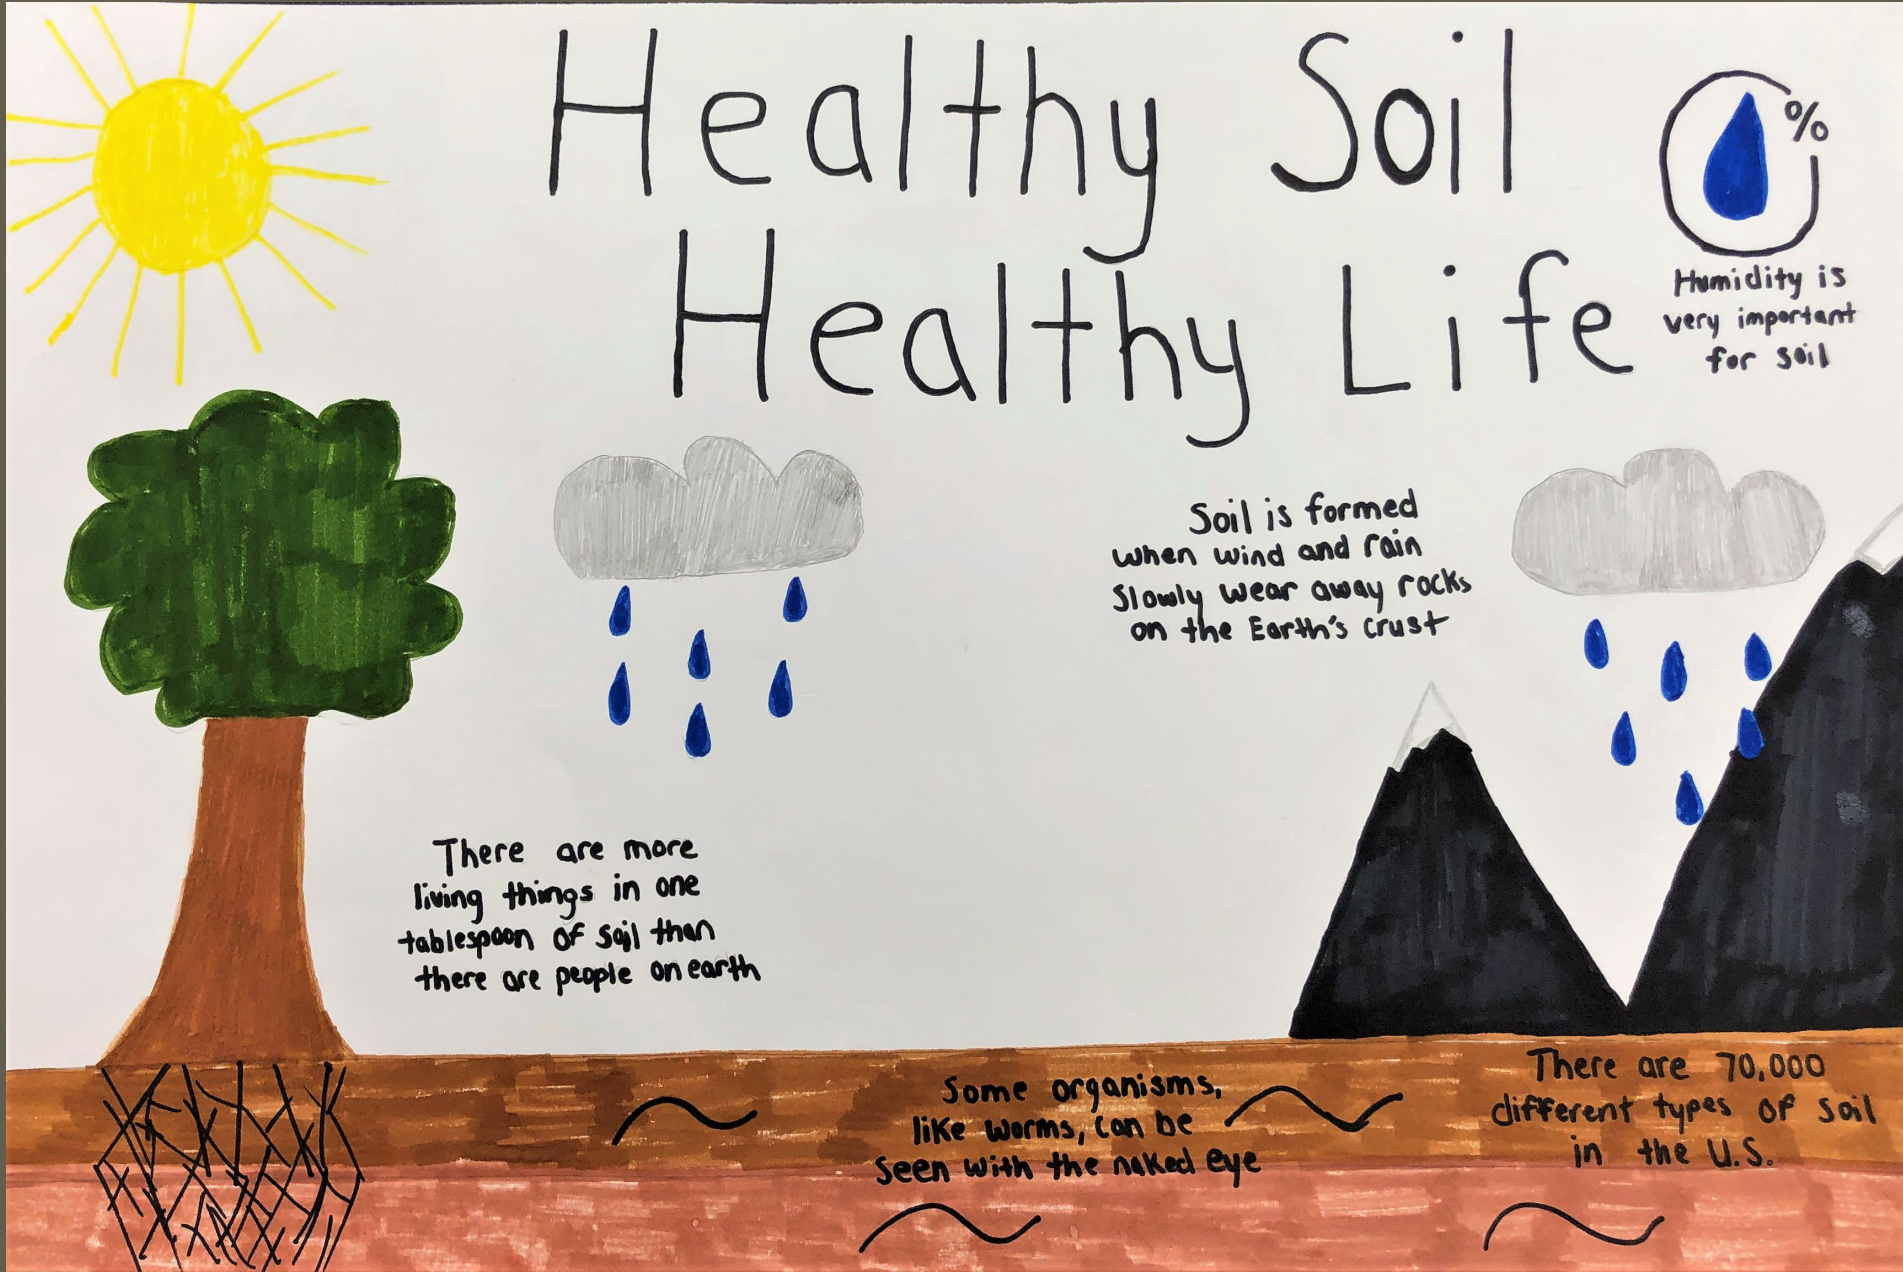 Healthy Soil
Healthy Life
%
Humidity is
very important
for soil
Soil is formed
when wind and rain
slowly wear away rocks
on the Earth's crust
There are more
living things in one
tablespoon of soil than
there are people on earth
Some organisms,
like worms, can be
seen with the naked eye
There are 70,000
different types of soil
in the U.S.